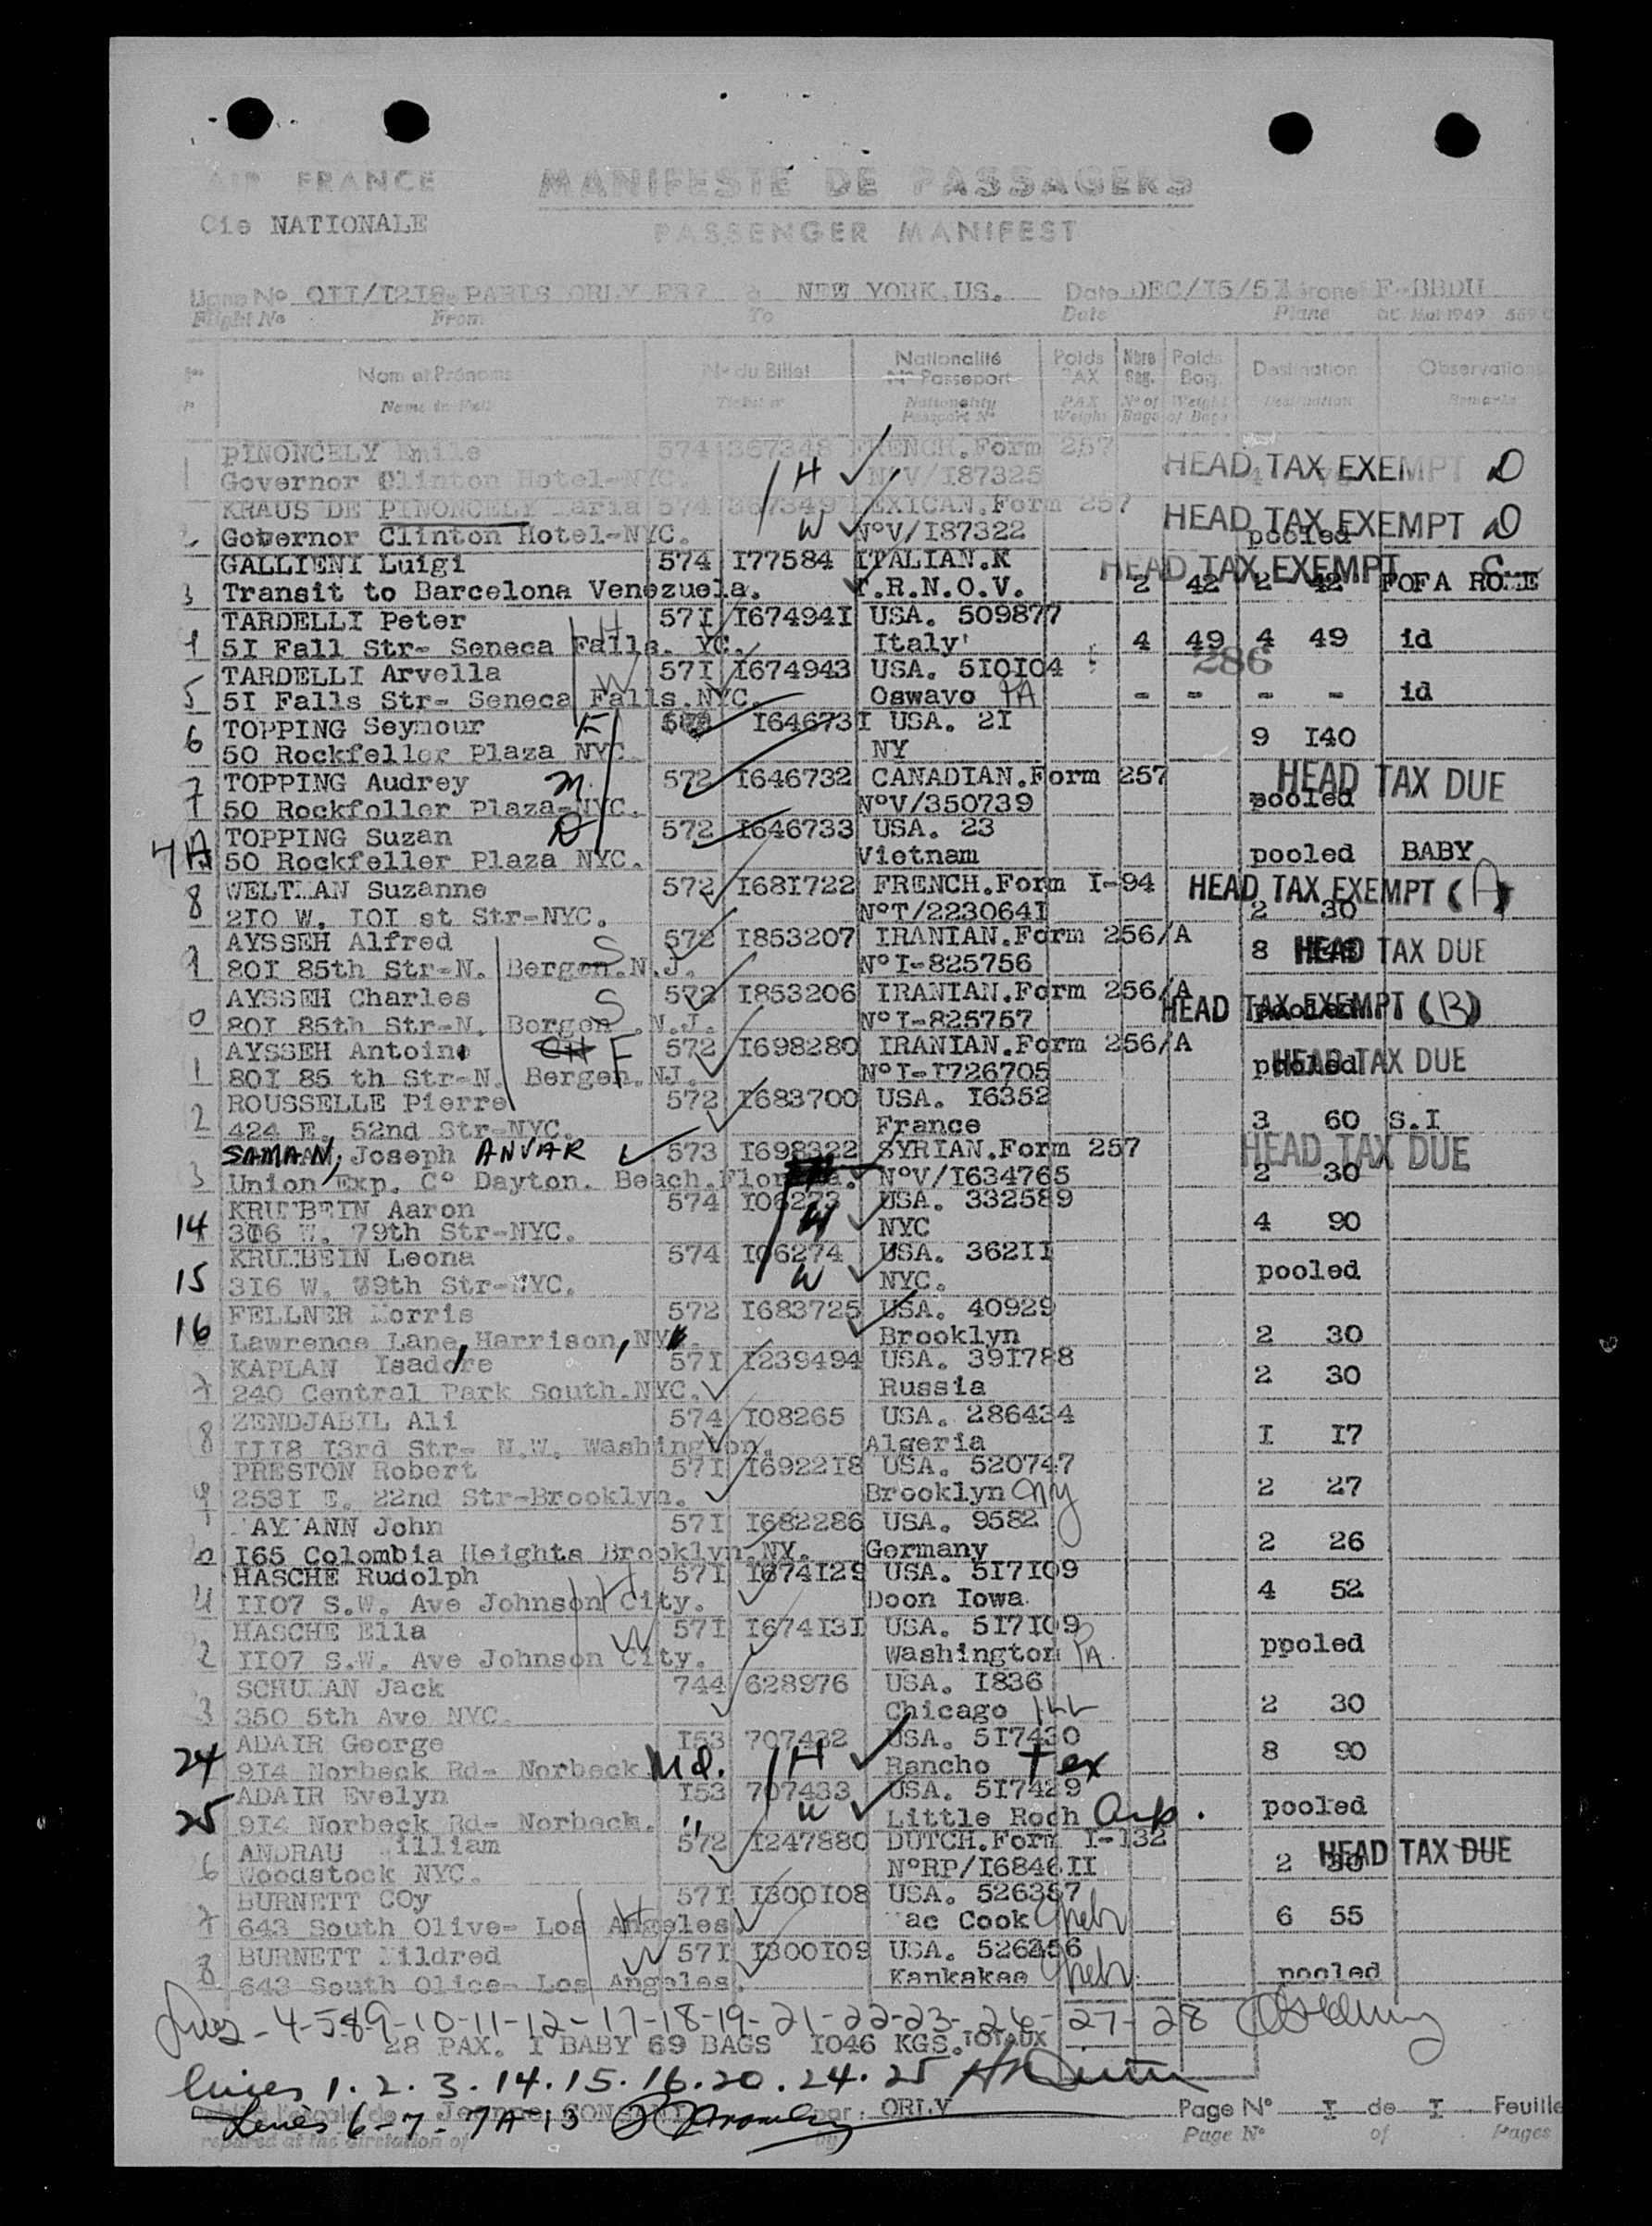 AIR FRANCE
MANIFESTE DE PASSAGERS
Cie NATIONALE
PASSENGER MANIFEST
Ligne No OII/I2I8 PARIS ORLY FR? à NEW YORK.US. Date DEC/I5/5I F-BBDU
Flight No From To Date Plane
Nom et Prénoms No du Billet Nationalité No Passeport Poids PAX Nbre Bag. Poids Bag. Destination Observations
Name in Full Ticket no Nationality Passport No PAX Weight No of Bags Weight of Bags Destination Remarks
1 PINONCELY Emile 574 367348 FRENCH.Form 257
Governor Clinton Hotel-NYC. H NoV/I87325 HEAD TAX EXEMPT D
KRAUS DE PINONCELY Maria 574 367349 MEXICAN.Form 257
2 Governor Clinton Hotel-NYC. W NoV/I87322 pooled HEAD TAX EXEMPT D
GALLIENI Luigi 574 I77584 ITALIAN.K HEAD TAX EXEMPT C
3 Transit to Barcelona Venezuela. T.R.N.O.V. 2 42 2 42 FOFA ROME
TARDELLI Peter 57I I67494I USA. 509877
5I Fall Str- Seneca Falls. YC. H Italy 4 49 4 49 id
TARDELLI Arvella 57I I674943 USA. 5I0I04 286
5 5I Falls Str- Seneca Falls.NYC. W Oswayo PA - - - - id
TOPPING Seymour F I64673I USA. 2I
6 50 Rockfeller Plaza NYC. NY 9 I40
7 TOPPING Audrey m. 572 I646732 CANADIAN.Form 257 HEAD TAX DUE
50 Rockfeller Plaza-NYC. NoV/350739 pooled
TOPPING Suzan D 572 I646733 USA. 23
7A 50 Rockfeller Plaza NYC. Vietnam pooled BABY
8 WELTMAN Suzanne 572 I68I722 FRENCH.Form I-94 HEAD TAX EXEMPT (A)
2I0 W. I0I st Str-NYC. NoT/223064I 2 30
AYSSEH Alfred S 572 I853207 IRANIAN.Form 256/A
9 80I 85th Str-N. Bergen.N.J. NoI-825756 8 HEAD TAX DUE
AYSSEH Charles S 572 I853206 IRANIAN.Form 256/A
0 80I 85th Str-N. Bergen .N.J. NoI-825757 pooled HEAD TAX EXEMPT (B)
AYSSEH Antoine F 572 I698280 IRANIAN.Form 256/A
1 80I 85 th Str-N. Bergen.NJ. NoI-I726705 pooled HEAD TAX DUE
ROUSSELLE Pierre 572 I683700 USA. I6352
2 424 E. 52nd Str-NYC. France 3 60 S.I
SAMAAN, Joseph ANVAR 573 I698322 SYRIAN.Form 257 HEAD TAX DUE
3 Union Exp. Co Dayton. Beach.Florida. NoV/I634765 2 30
KRUMBEIN Aaron 574 I06273 USA. 332589
14 3I6 W. 79th Str-NYC. H NYC 4 90
KRUMBEIN Leona 574 I06274 USA. 362II
15 3I6 W. 79th Str-NYC. W NYC. pooled
FELLNER Morris 572 I683725 USA. 40929
16 Lawrence Lane, Harrison, NY. Brooklyn 2 30
KAPLAN Isadore 57I I239494 USA. 39I788
7 240 Central Park South.NYC. Russia 2 30
ZENDJABIL Ali 574 I08265 USA. 286434
8 III8 I3rd Str- N.W. Washington. Algeria I I7
PRESTON Robert 57I I6922I8 USA. 520747
9 253I E. 22nd Str-Brooklyn. Brooklyn NY 2 27
AY ANN John 57I I682286 USA. 9582
0 I65 Colombia Heights Brooklyn.NY. Germany 2 26
HASCHE Rudolph 57I I674I29 USA. 5I7I09
II07 S.W. Ave Johnson City. H Doon Iowa 4 52
HASCHE Ella 57I I674I3I USA. 5I7I09
2 II07 S.W. Ave Johnson City. W Washington PA. ppoled
SCHUMAN Jack 744 628976 USA. I836
3 350 5th Ave NYC. Chicago ILL 2 30
ADAIR George I53 707432 USA. 5I7430
24 9I4 Norbeck Rd- Norbeck Md. H Rancho tex 8 90
ADAIR Evelyn I53 707433 USA. 5I7429
25 9I4 Norbeck Rd- Norbeck. " W Little Roch Ark. pooled
ANDRAU William 572 I247880 DUTCH.Form I-I32
6 Woodstock NYC. NoRP/I6846II 2 30 HEAD TAX DUE
BURNETT COy 57I I300I08 USA. 526357
7 643 South Olive- Los Angeles. H ac Cook Nebr 6 55
BURNETT Mildred 57I I300I09 USA. 526356
8 643 South Olice- Los Angeles. W Kankakee Nebr. pooled
Lines - 4-5-8-9-10-11-12-17-18-19-21-22-23-26-27-28
28 PAX. I BABY 69 BAGS I046 KGS. TOTAUX
lines 1.2.3.14.15.16.20.24.25
Lines 6-7-7A-13 par: ORLY Page No I de I Feuille
repared at the Page No of Pages